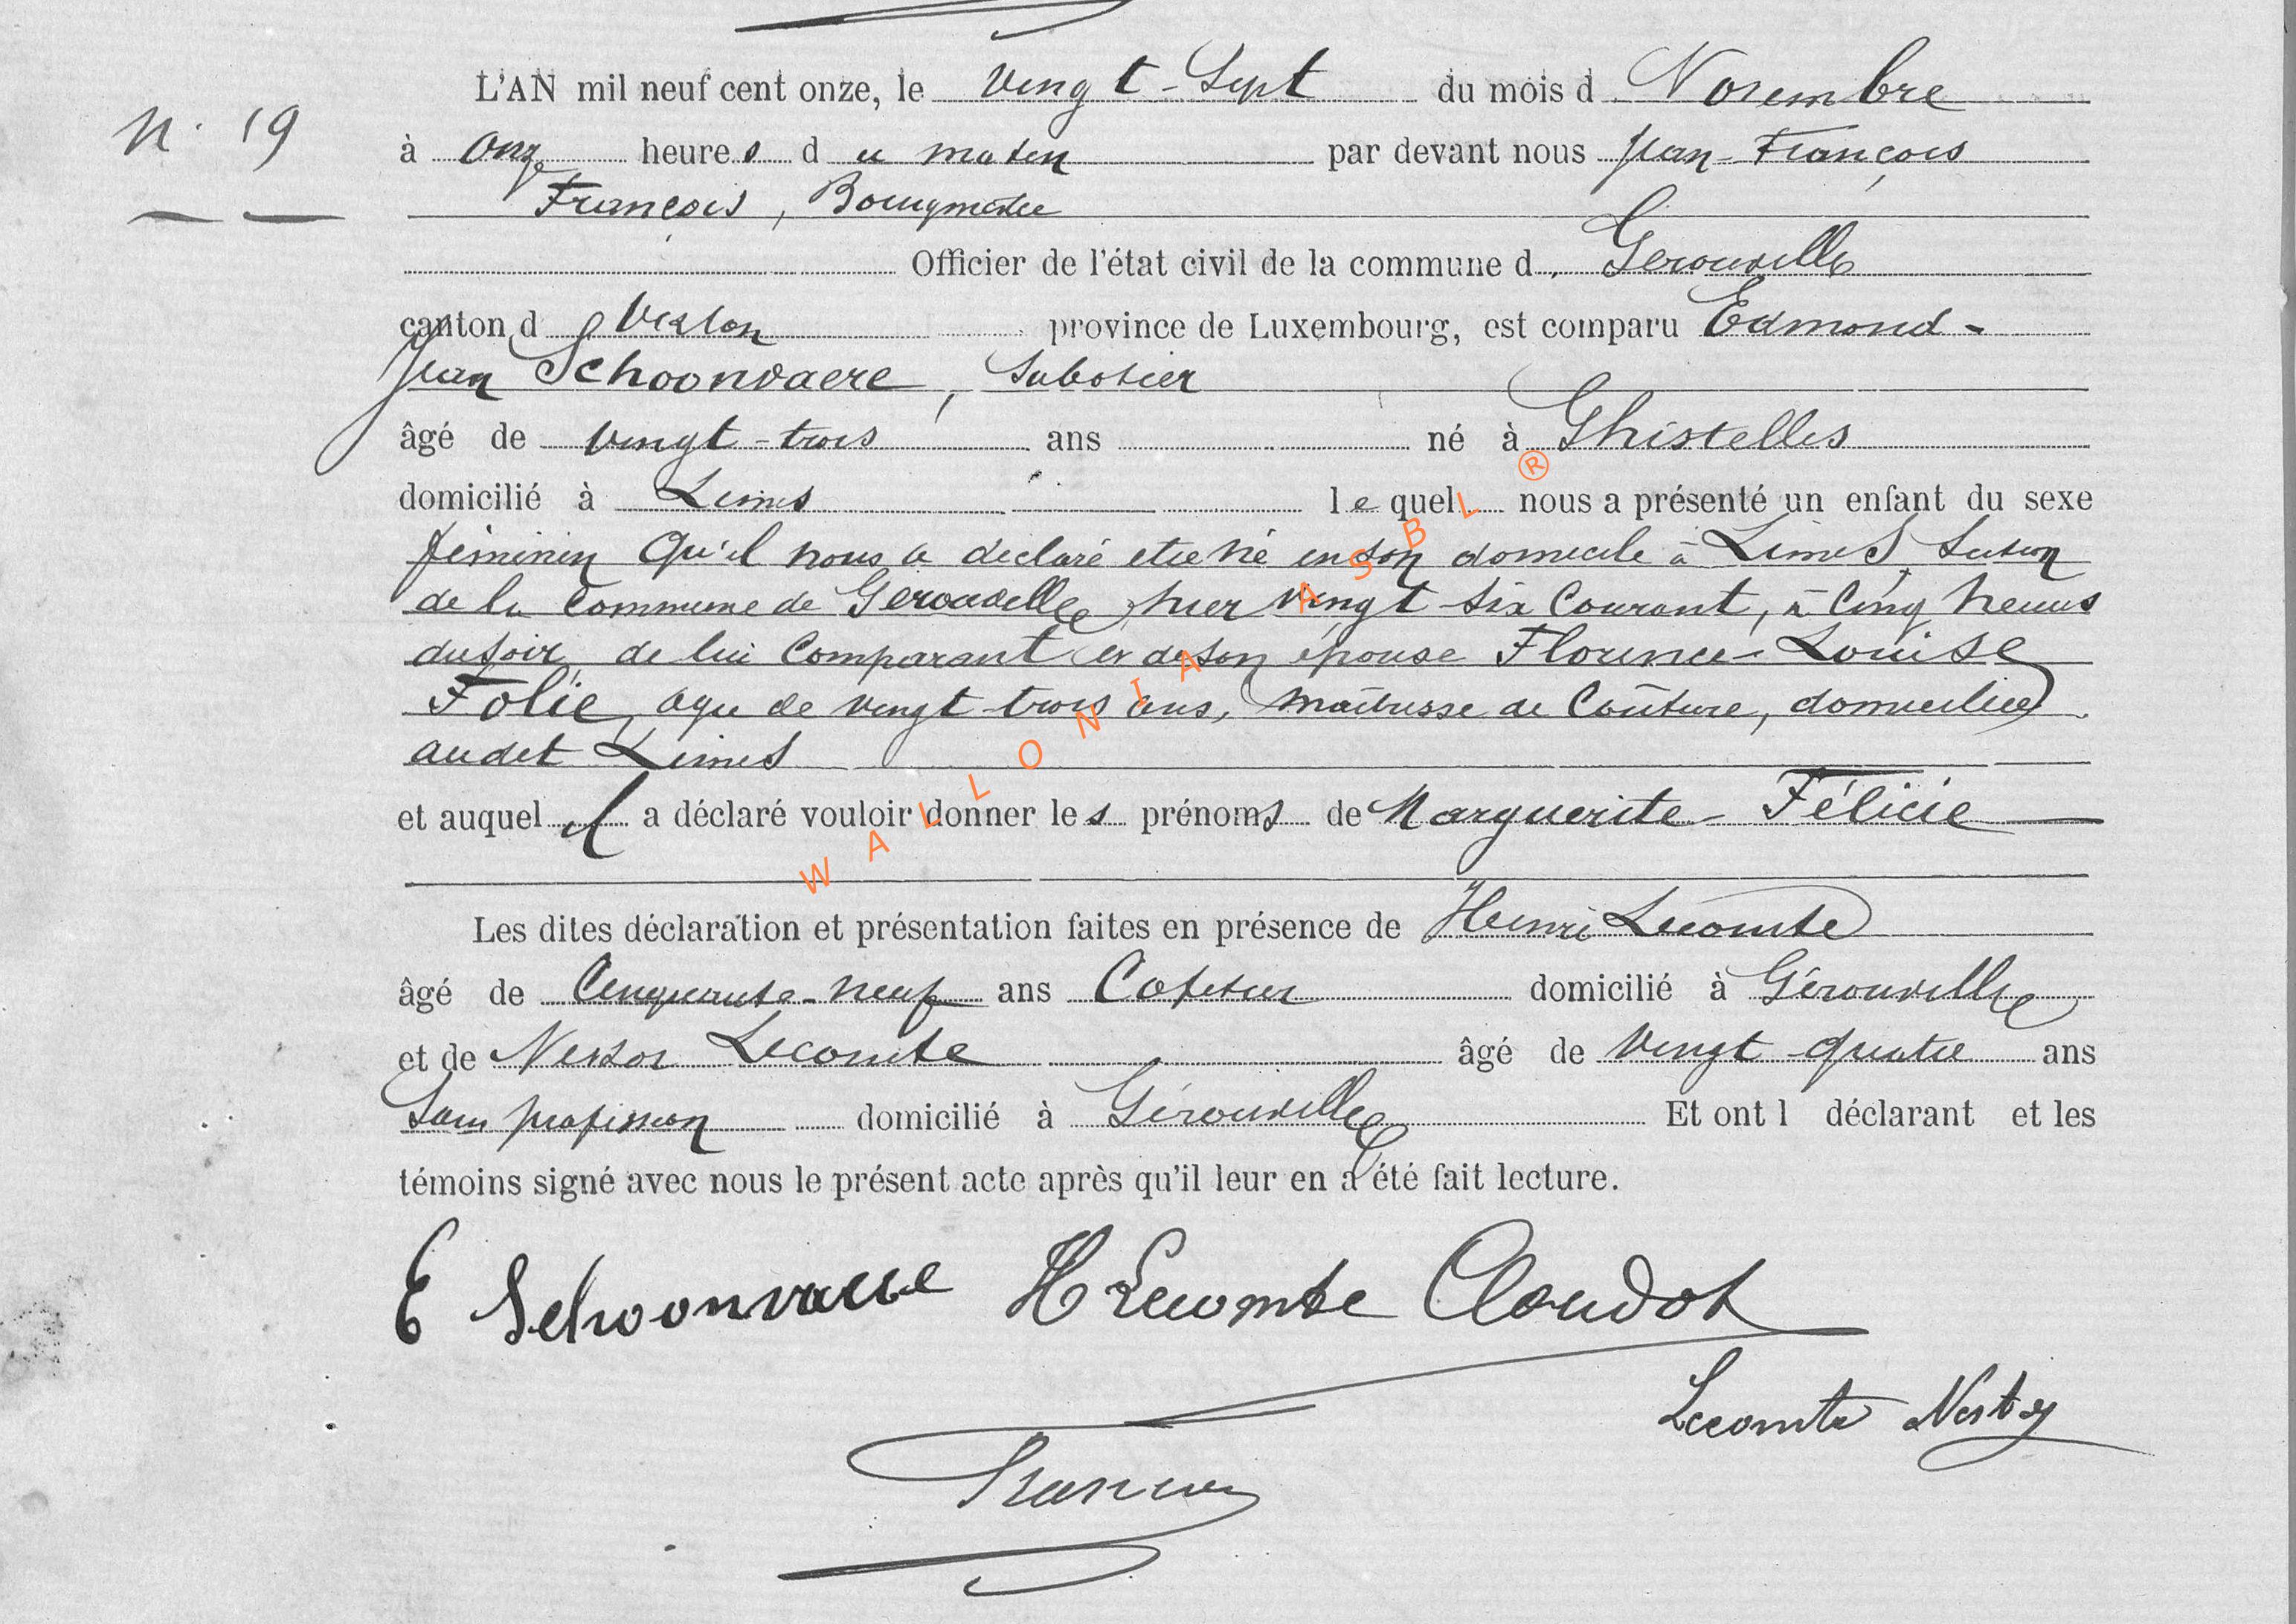 L'AN mil neuf cent onze, le vingt-Sept du mois d Novembre
N. 19
à Onze heures du matin par devant nous Jean-François
François, Bourgmestre
Officier de l'état civil de la commune d Gerouville
canton d Virton province de Luxembourg, est comparu Edmond-
Jean Schoonvaere, Sabotier
âgé de vingt-trois ans né à Ghistelles
domicilié à Limes lequel nous a présenté un enfant du sexe
féminin Qu'il nous a déclaré etre né en son domicile à Limes, Section
de la Commune de Gerouville, hier vingt six Courant, à Cinq heures
du soir, de lui Comparant et de son épouse Florence-Louise
Folie, agée de vingt-trois ans, maîtresse de Coûture, domiciliée
audit Limes
et auquel il a déclaré vouloir donner les prénoms de Marguerite-Félicie
Les dites déclaration et présentation faites en présence de Henri Lecomte
âgé de Cinquante-neuf ans domicilié à Gérouville
et de Nestor Lecomte âgé de Vingt-quatre ans
Sans profession domicilié à Gérouville Et ont l déclarant et les
témoins signé avec nous le présent acte après qu'il leur en a été fait lecture.
E Schoonvaere H Lecomte Claudot
Lecomte Nestor
François
WALLONIA ASBL ®